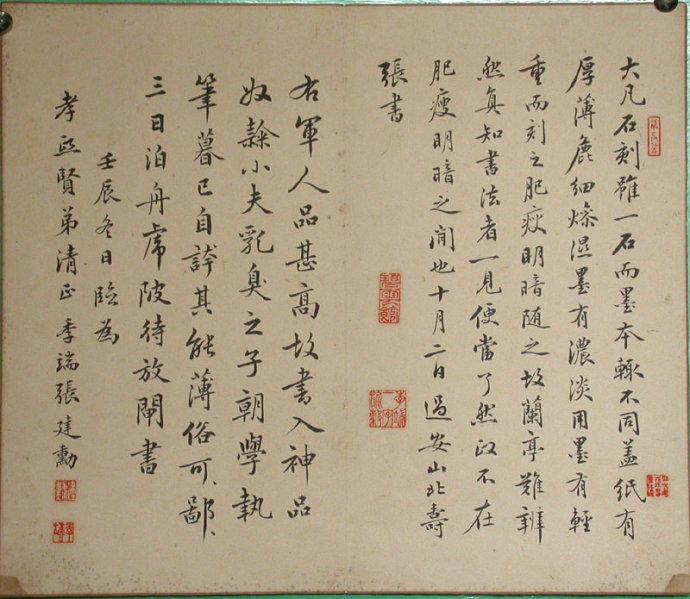 大凡石刻雖一石而墨本輒不同盖紙有
厚薄麁細燥濕墨有濃淡用墨有輕
重而刻之肥瘦明暗随之故蘭亭難辨
然真知書法者一見便當了然政不在
肥瘦明暗之間也十月二日過安山北壽
張書
右軍人品甚高故書入神品
奴隷小夫乳臭之子朝學執
筆暮已自誇其能薄俗可、鄙、
三日泊舟虎陂待放閘書
壬辰冬日臨為
孝賢弟清正 季端張建勳